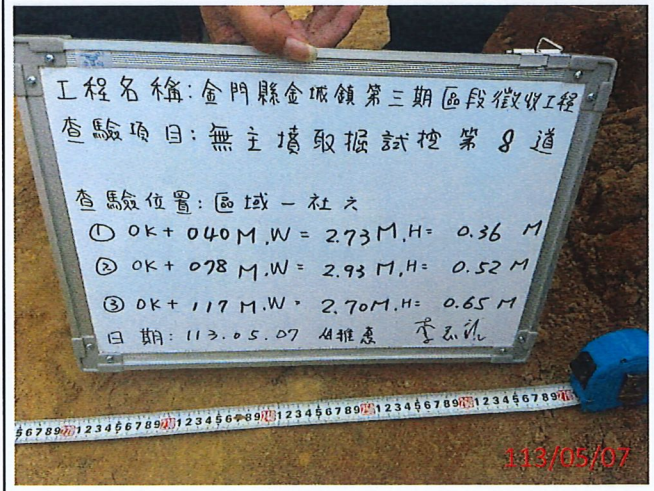 工程名稱:金門縣金城鎮第三期區段徵收工程
查驗項目:無主墳取掘試挖第8道
查驗位置:區域一社六
① 0K+040M.W=2.73M.H=0.36M
② 0K+078M.W=2.93M.H=0.52M
③ 0K+117M.W=2.70M.H=0.65M
日期:113.05.07
113/05/07